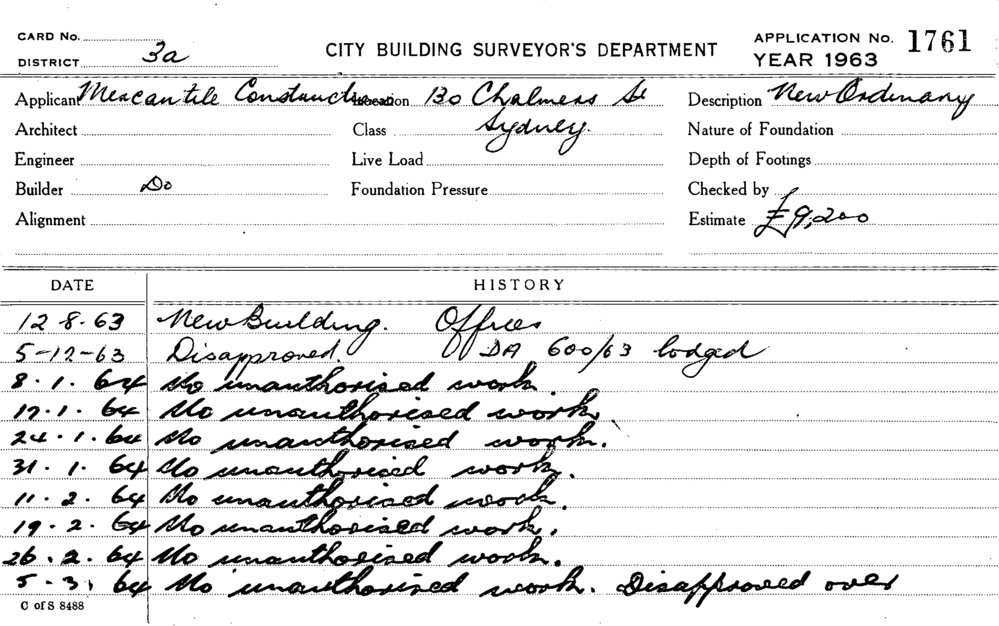 CARD No.
DISTRICT 3a
CITY BUILDING SURVEYOR'S DEPARTMENT
APPLICATION No. 1761
YEAR 1963
Applicant Mercantile Construction Location 130 Chalmers St Description New Ordinary
Architect Class Sydney. Nature of Foundation
Engineer Live Load Depth of Footings
Builder Do Foundation Pressure Checked by
Alignment Estimate £9,200
DATE HISTORY
12 8.63 New Building. Offices
5-12-63 Disapproved. DA 600/63 lodged
8.1.64 No unauthorised work.
17.1.64 No unauthorised work.
24.1.64 No unauthorised work.
31.1.64 No unauthorised work.
11.2.64 No unauthorised work.
19.2.64 No unauthorised work.
26.2.64 No unauthorised work.
5.3.64 No unauthorised work. Disapproved over
C of S 8488